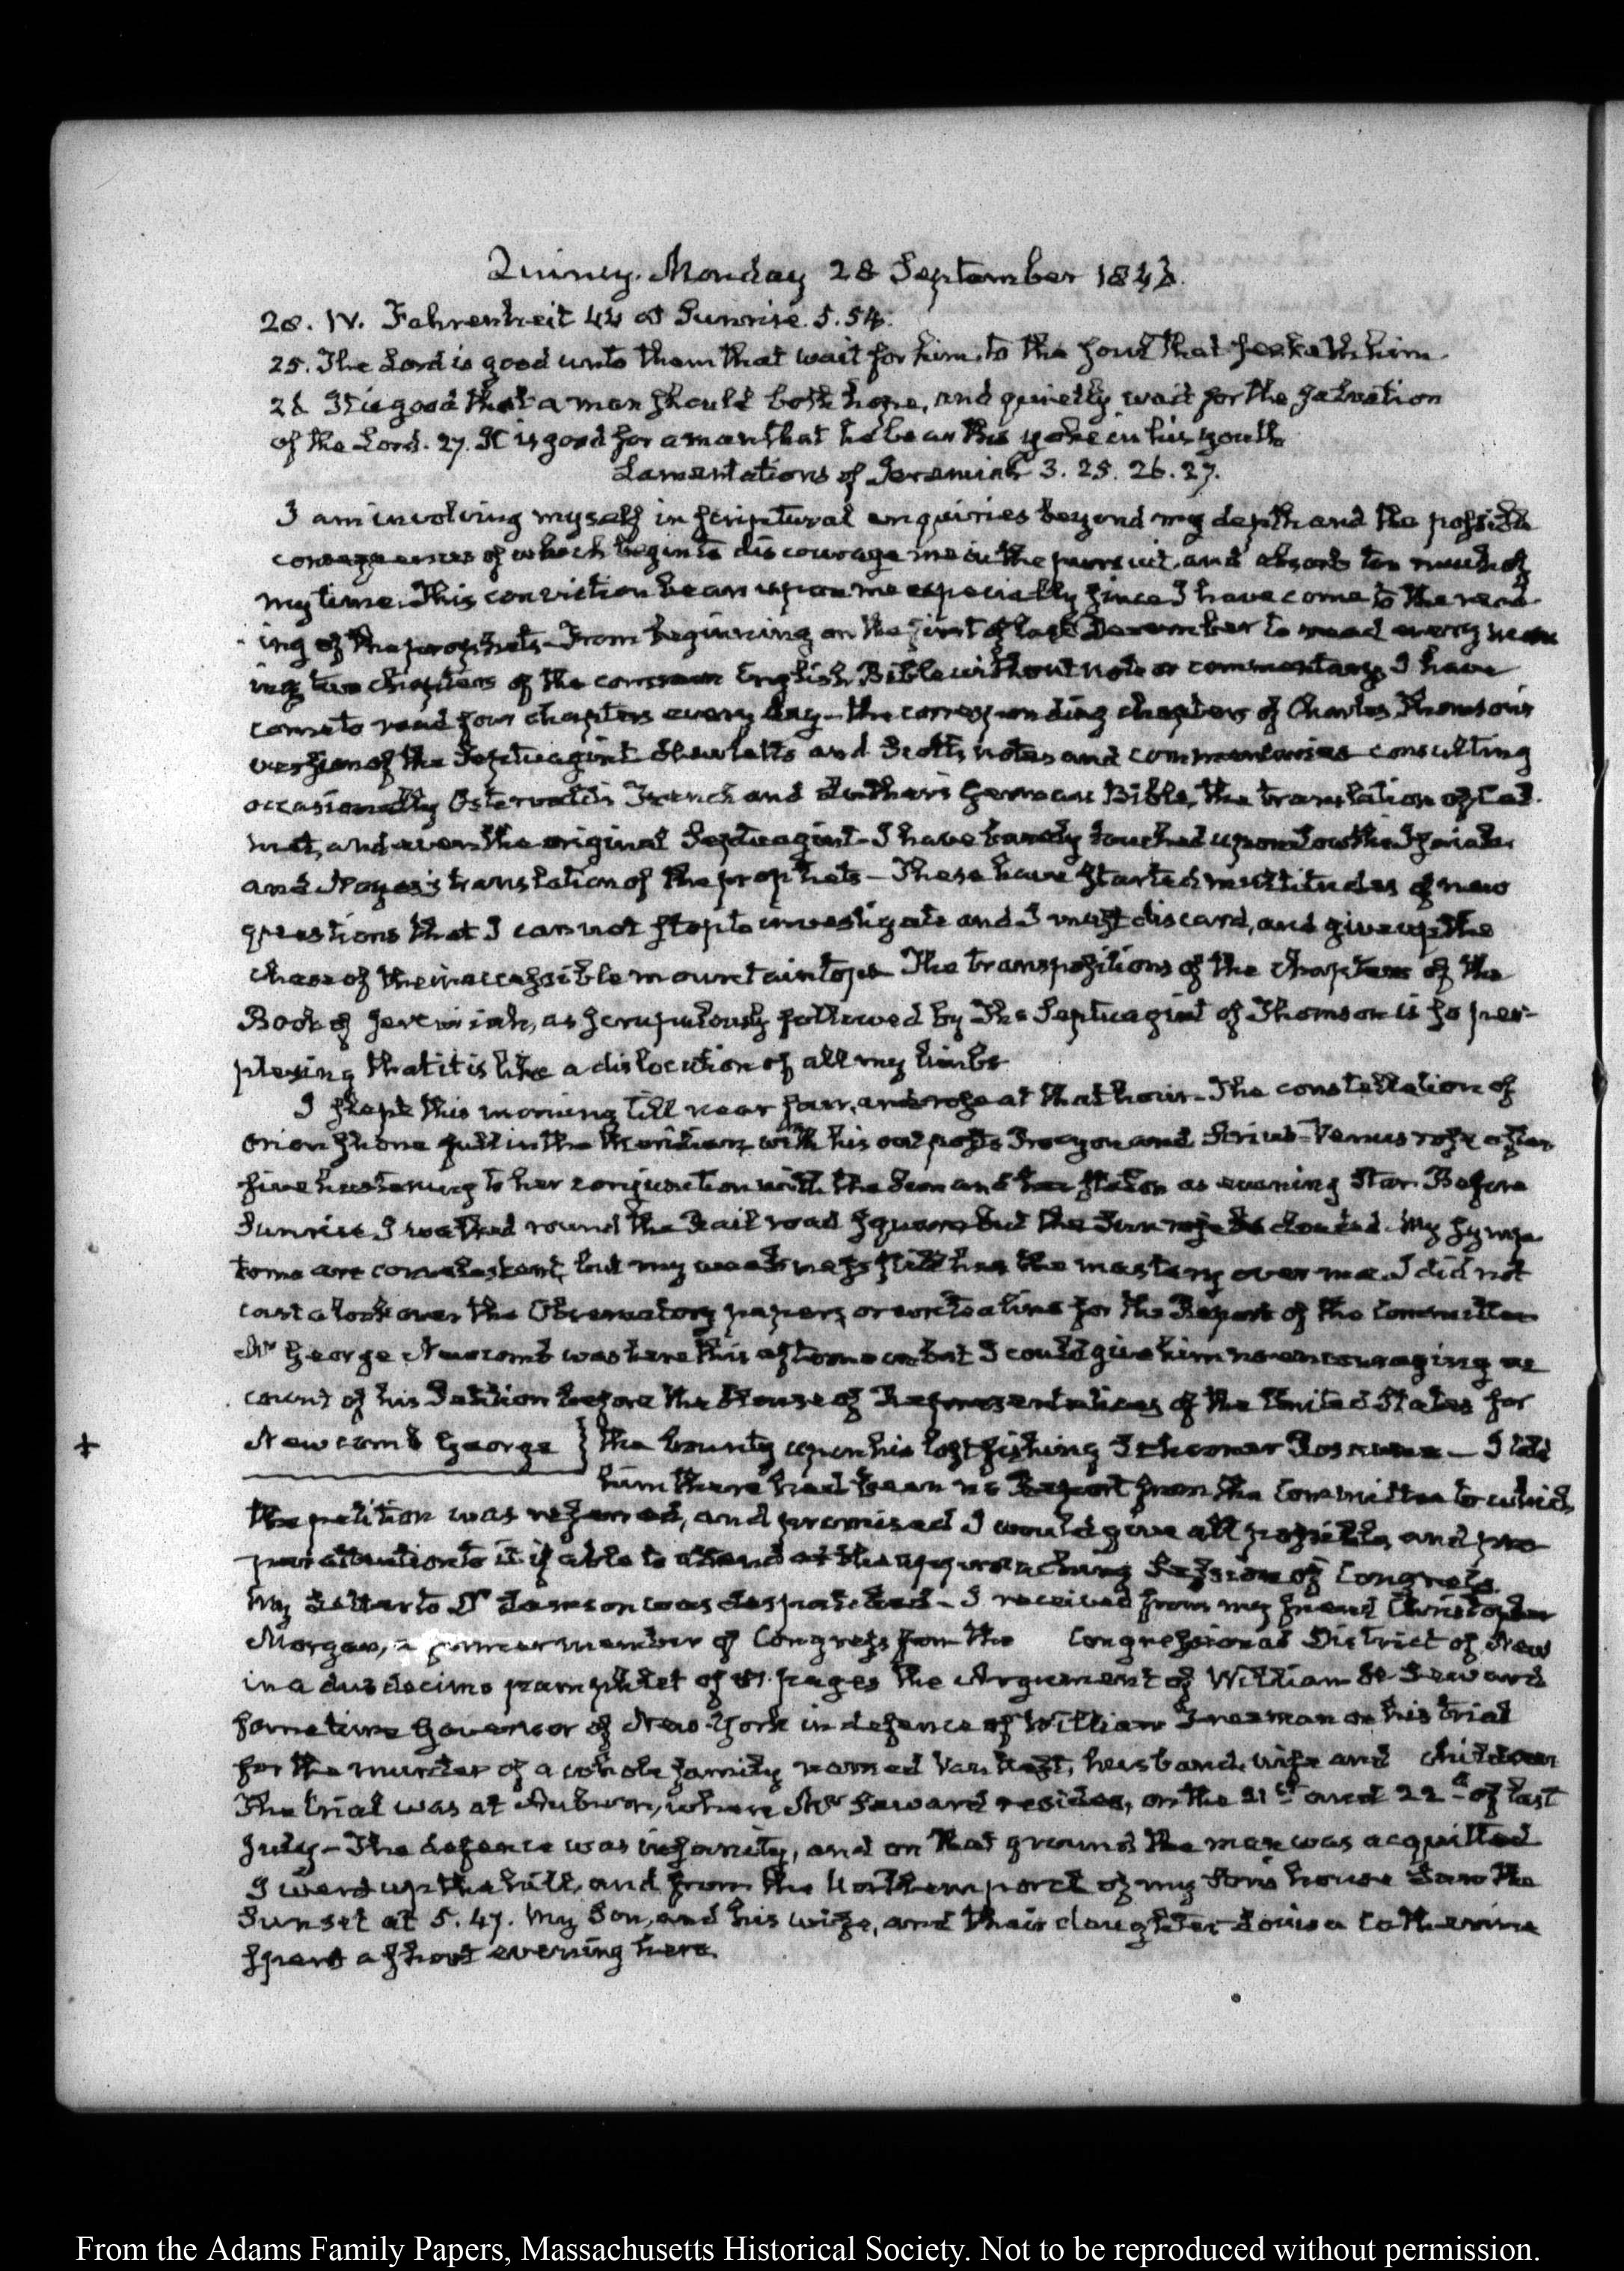 Quincy. Monday 28 September 1846.
28. IV. Fahrenheit 44 at Sunrise. 5.54.
25. The Lord is good unto them that wait for him, to the soul that seeketh him
26 It is good that a man should both hope, and quietly wait for the salvation
of the Lord. 27. It is good for a man that he bear the yoke in his youth
Lamentations of Jeremiah 3. 25. 26. 27.
I am involving myself in scriptural enquiries beyond my depth and the possible
consequences of which begin to discourage me in the pursuit, and absorb too much of
my time. This conviction bears upon me especially since I have come to the read-
ing of the prophets. From beginning on the first of last December to read every morn
ing two chapters of the common English Bible without note or commentary I have
come to read four chapters every day - the corresponding chapters of Charles Thomson's
version of the Septuagint Hewletts and Scotts notes and commentaries consulting
occasionally Ostervald's French and Luther's German Bible, the translation of Cal-
met, and even the original Septuagint - I have barely touched upon Lowth's Isaiah
and Noyes's translation of the prophets - These have started multitudes of new
questions that I cannot stop to investigate and I must discard, and give up the
chase of their inaccessible mountain tops - The transpositions of the chapters of the
Book of Jeremiah, as scrupulously followed by the Septuagint of Thomson is so per-
plexing that it is like a dislocation of all my limbs
I slept this morning till near four, and rose at that hour - The constellation of
Orion shone full in the Meridian, with his outposts Procyon and Sirius - Venus rose after
five hastening to her conjunction with the Sun and her station as evening Star. Before
Sunrise I walked round the Rail road square but the Sun rose clouded. My symp-
toms are convalescent, but my weakness still has the mastery over me. I did not
cast a look over the Observatory papers, or write a line for the Report of the Committee
Mr George Newcomb was here this afternoon but I could give him no encouraging ac
count of his Petition before the House of Representatives of the United States for
Newcomb George } the bounty upon his lost fishing Schooner - I told
him there had been no Report from the Committee to which
the petition was referred, and promised I would give all possible, and pro-
per attention to it if able to attend at the approaching Session of Congress.
My Letter to Dr was despatched - I received from my friend Christopher
Morgan, a former member of Congress from the Congressional District of New
in a duodecimo pamphlet of pages the Argument of William H Seward
sometime Governor of New-York in defence of William Freeman on his trial
for the murder of a whole family named Van Nest, husband, wife and children
The trial was at Auburn, where Mr Seward resides, on the 21st and 22d of last
July - The defence was insanity, and on that ground the man was acquitted
I went up the hill, and from the Northern porch of my Son's house saw the
Sunset at 5.47. My Son, and his wife, and their daughter Louisa Catherine
spent a short evening here.
From the Adams Family Papers, Massachusetts Historical Society. Not to be reproduced without permission.